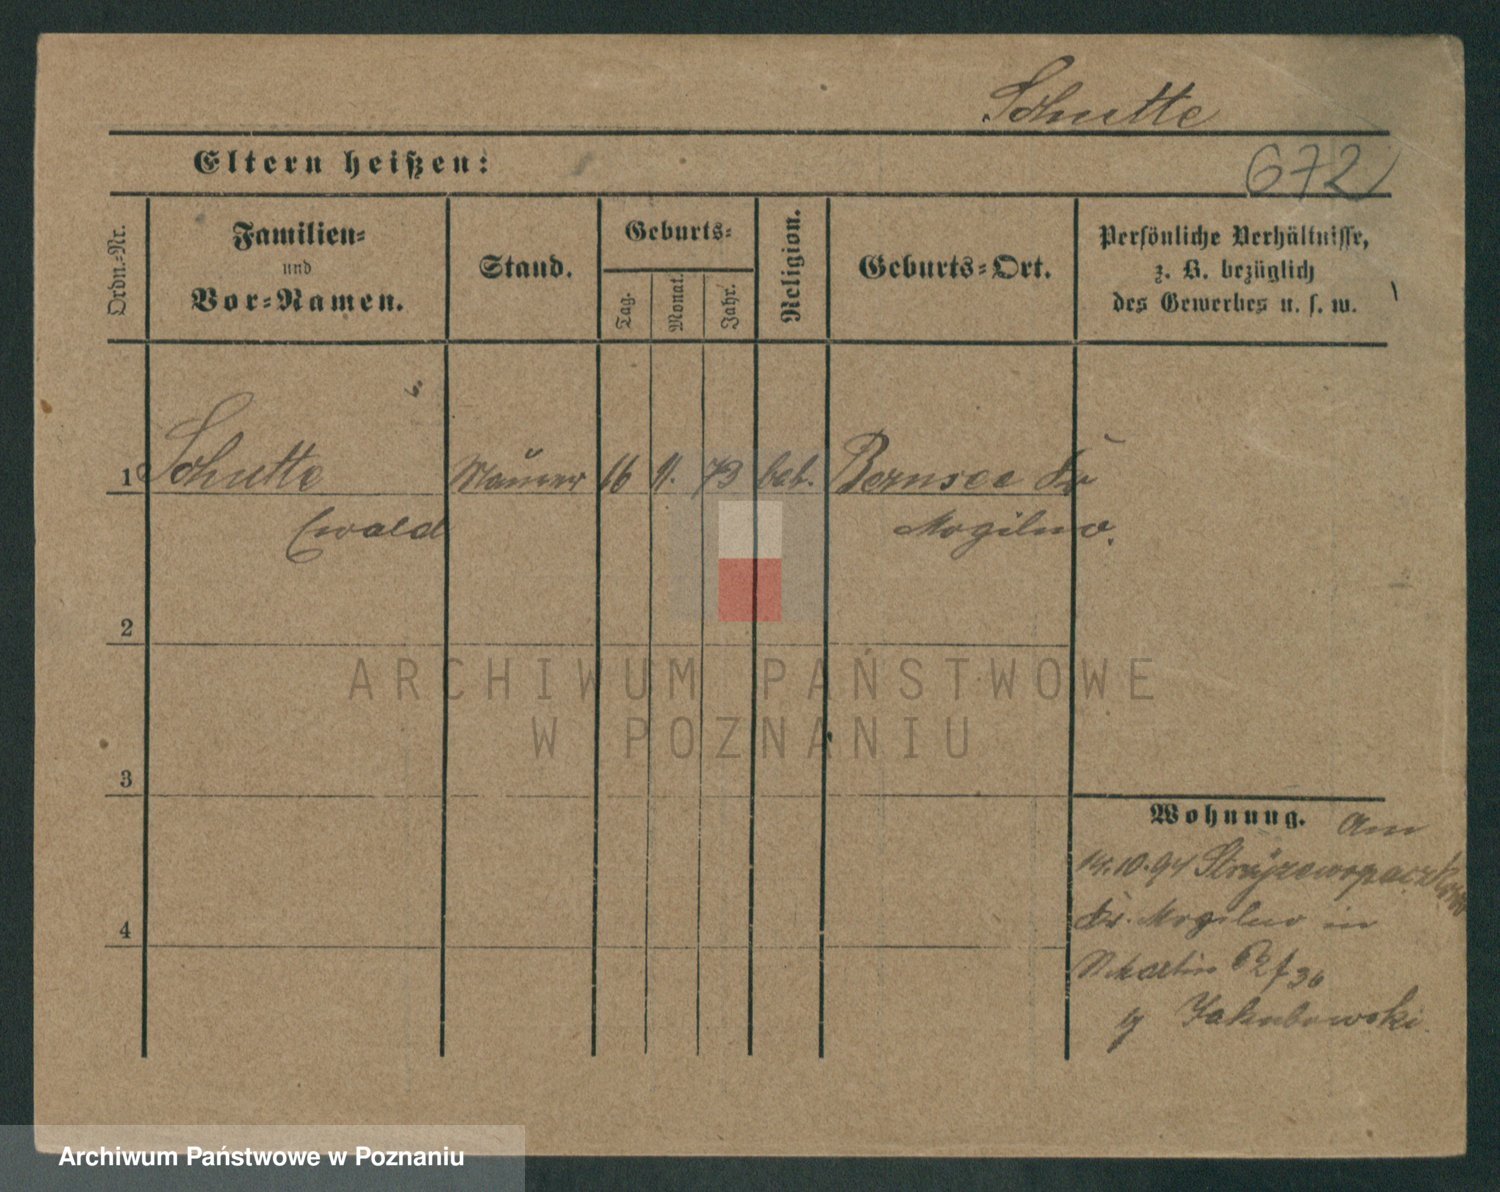 Schutte
Eltern heißen:
672
Ordn.-Nr.
Familien-
und
Vor-Namen.
Stand.
Geburts-
Tag.
Monat.
Jahr.
Religion.
Geburts-Ort.
Persönliche Verhältnisse,
z. B. bezüglich
des Gewerbes u. s. w.
1 Schutte Maurer 16 11. 73 Bernsee Kr
Ewald Mogilno.
2
ARCHIWUM PAŃSTWOWE
W POZNANIU
3
Wohnung. Am
14.10.94
Kr. Mogilno in
Martin 36
Jakubowski.
4
Archiwum Państwowe w Poznaniu